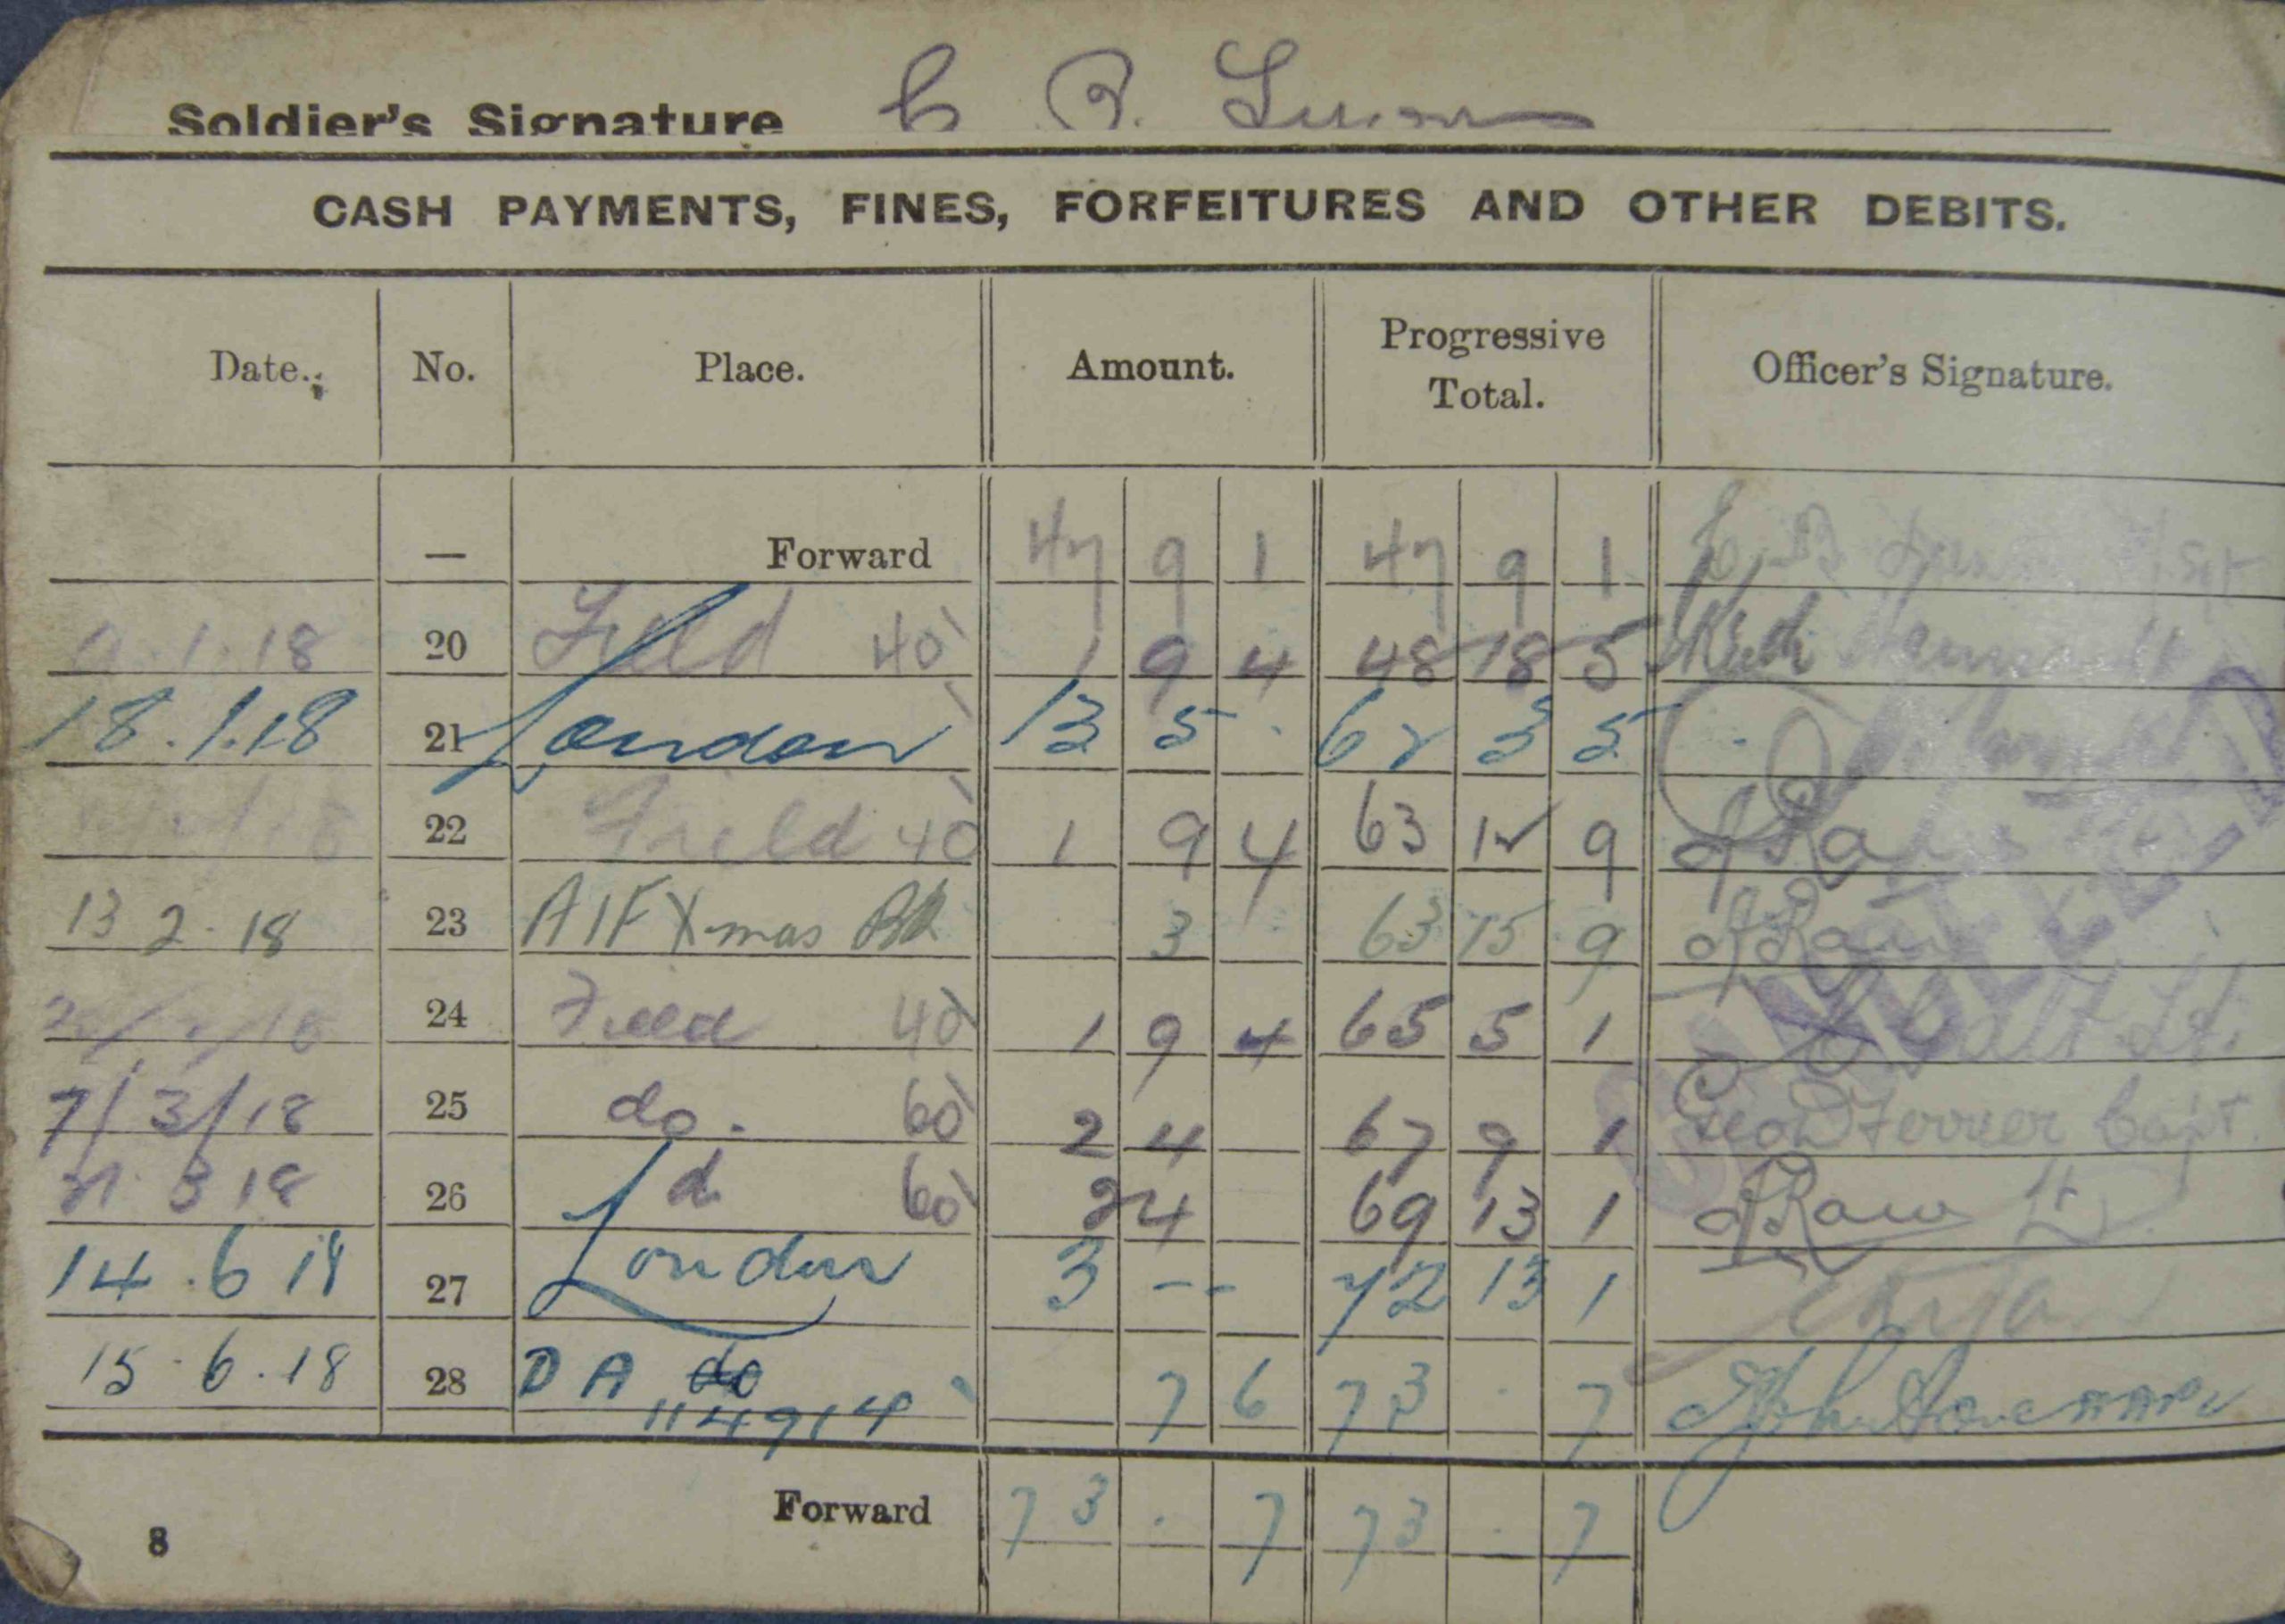 Soldier's Signature C B.
CASH PAYMENTS, FINES, FORFEITURES AND OTHER DEBITS.
Date. No. Place. Amount. Progressive Total. Officer's Signature.
— Forward 47 9 1 47 9 1
1.18 20 Field 40 1 9 4 48 18 5
18.1.18 21 London 13 5 - 62 3 5
22 Field 40 1 9 4 63 12 9 Raw
13 2.18 23 AIF Xmas Bk 3 63 15 9 Raw
24 Field 40 1 9 4 65 5 1 Lt.
7/3/18 25 do. 60 2 4 67 9 1 Capt.
3 18 26 d 60 2 4 69 13 1 Raw Lt
14.6 18 27 London 3 -- 72 13 1
15.6.18 28 D A do 7 6 73 . 7
114914
Forward 73 . 7 73 . 7
8